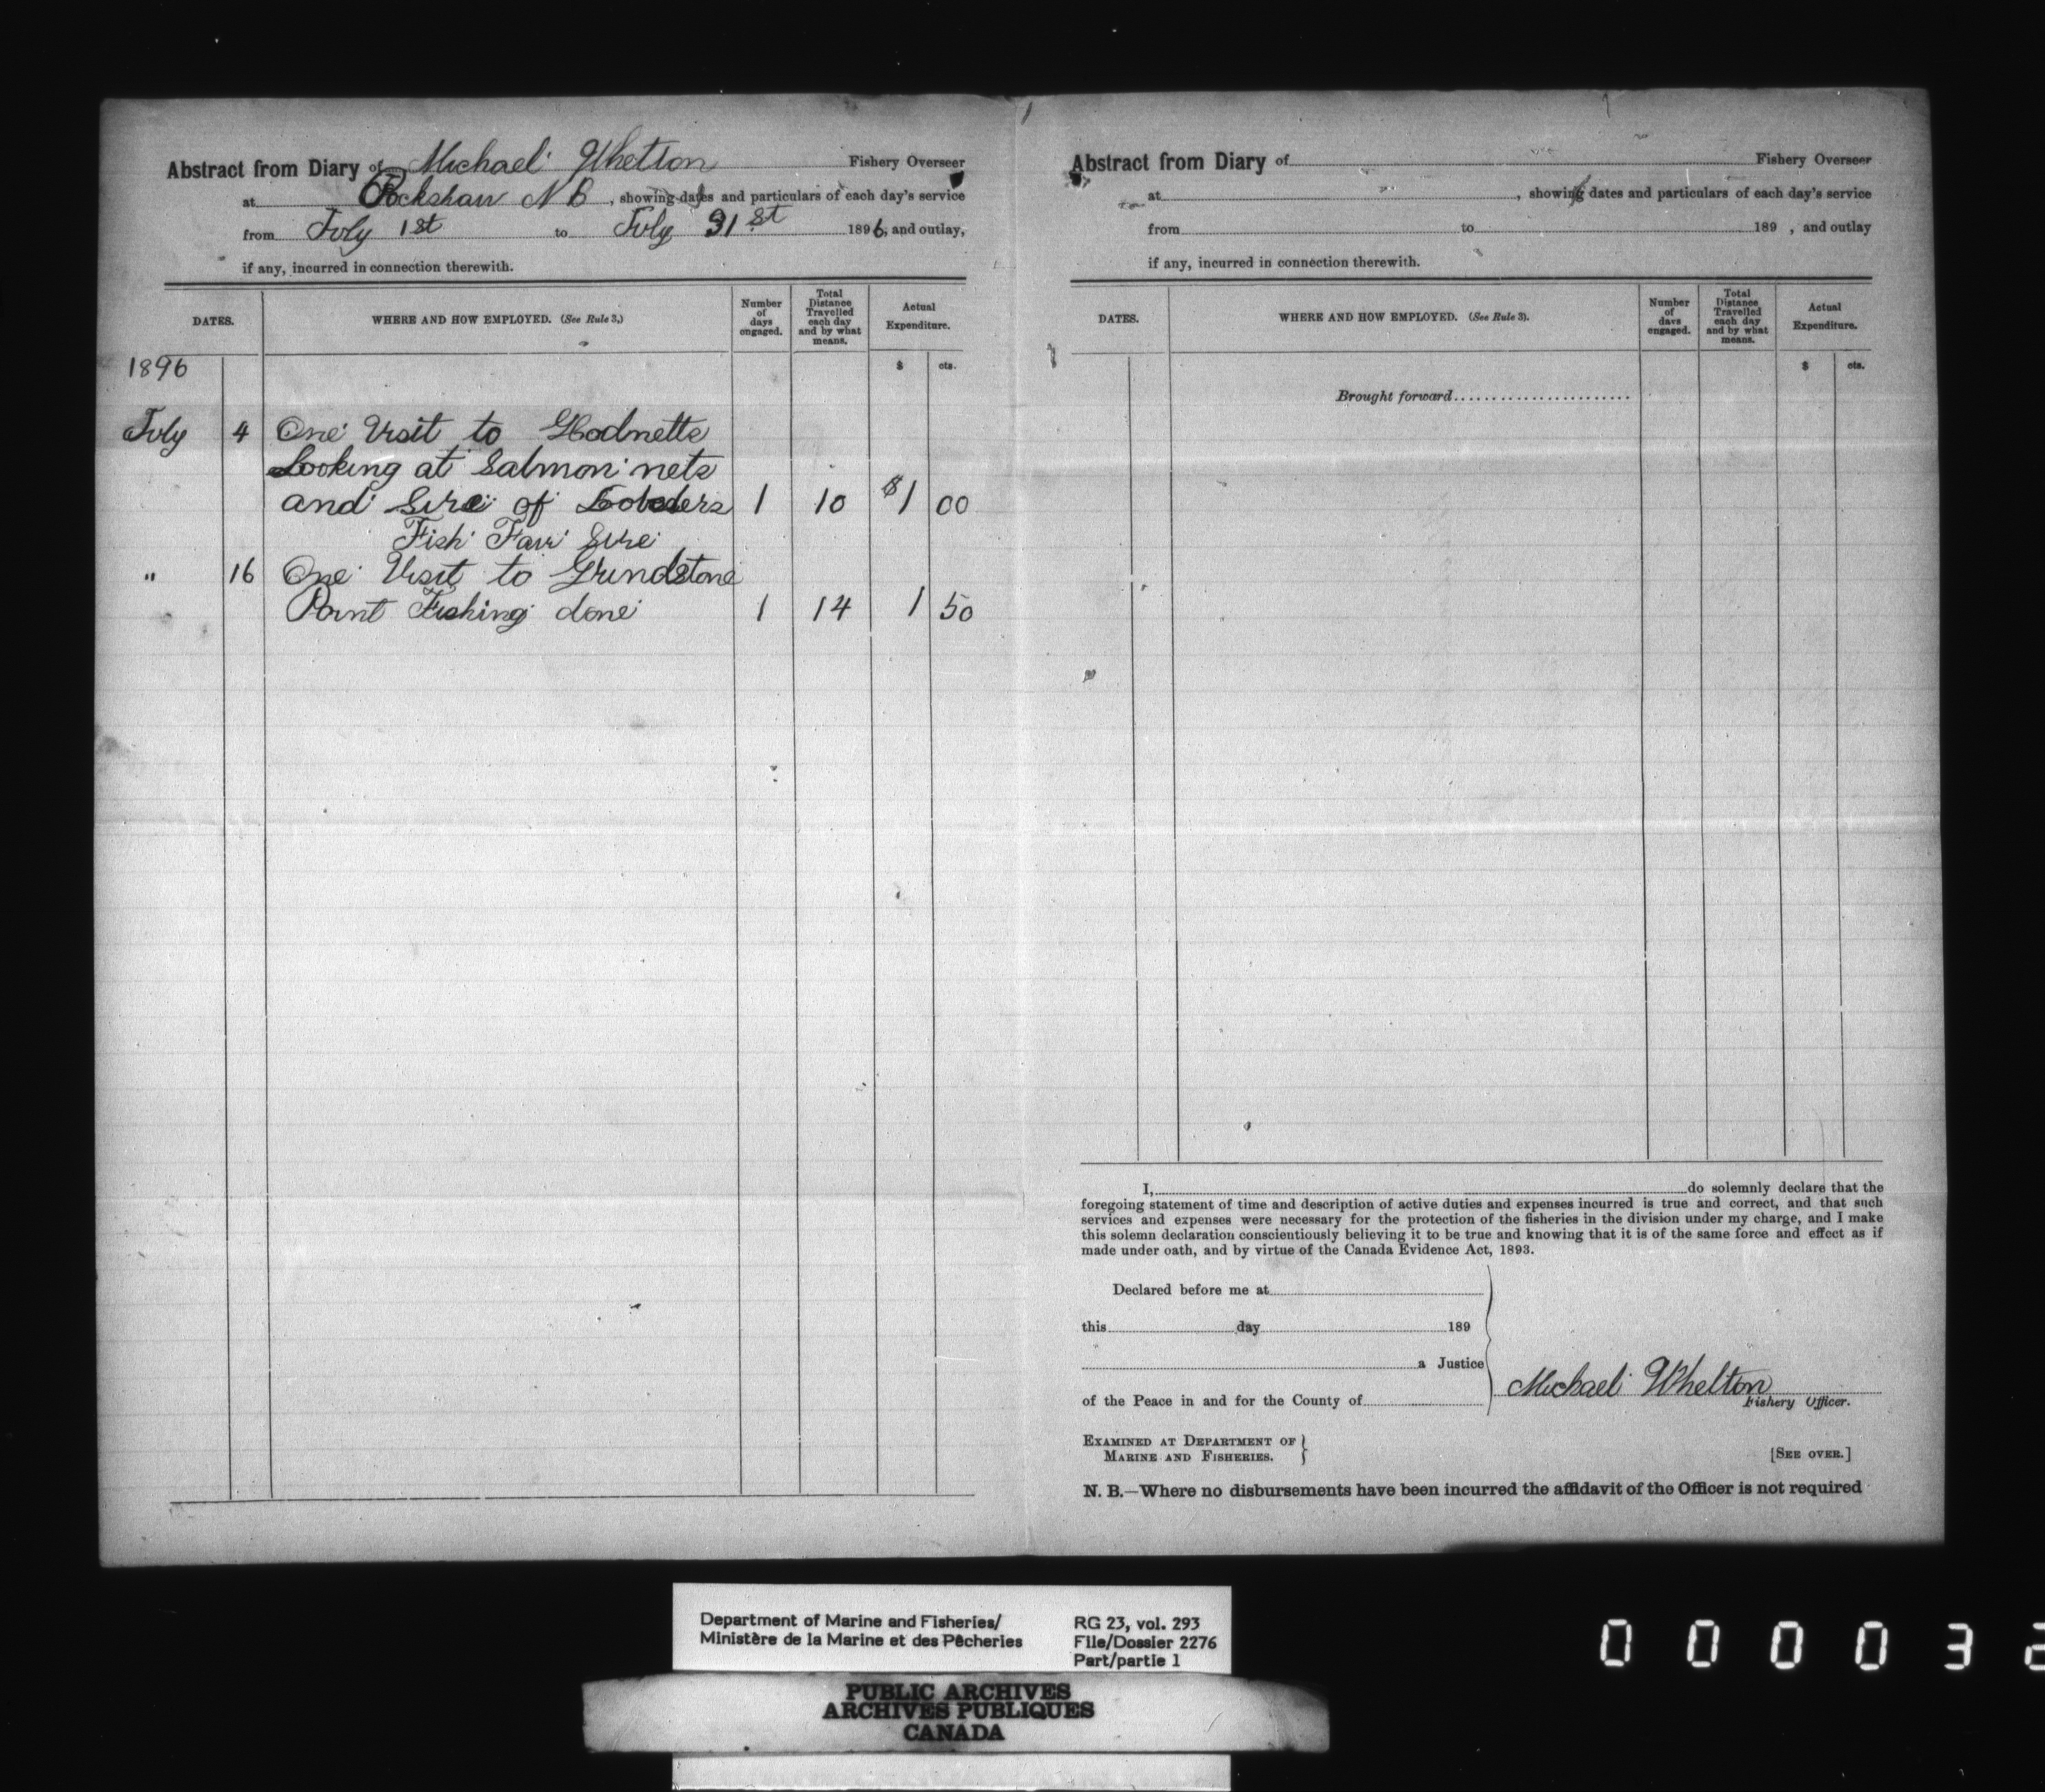 Abstract from Diary of Michael Whelton Fishery Overseer
at Pockshaw N B, showing dates and particulars of each day's service
from July 1st to July 31st 1896, and outlay,
if any, incurred in connection therewith.
DATES.
WHERE AND HOW EMPLOYED. (See Rule 3.)
Number of days engaged.
Total Distance Travelled each day and by what means.
Actual Expenditure.
1896 $ cts.
July 4 One Visit to Hodnetts
Looking at Salmon nets
and Size of Lobsters 1 10 $1 00
Fish Fair Size
" 16 One Visit to Grindstone
Point Fishing done 1 14 1 50
Abstract from Diary of Fishery Overseer
at , showing dates and particulars of each day's service
from to 189 , and outlay
if any, incurred in connection therewith.
DATES.
WHERE AND HOW EMPLOYED. (See Rule 3).
Number of days engaged.
Total Distance Travelled each day and by what means.
Actual Expenditure.
$ cts.
Brought forward
I, do solemnly declare that the
foregoing statement of time and description of active duties and expenses incurred is true and correct, and that such
services and expenses were necessary for the protection of the fisheries in the division under my charge, and I make
this solemn declaration conscientiously believing it to be true and knowing that it is of the same force and effect as if
made under oath, and by virtue of the Canada Evidence Act, 1893.
Declared before me at
this day 189
a Justice
of the Peace in and for the County of
Michael Whelton
Fishery Officer.
EXAMINED AT DEPARTMENT OF
MARINE AND FISHERIES.
[SEE OVER.]
N. B.—Where no disbursements have been incurred the affidavit of the Officer is not required
Department of Marine and Fisheries/
Ministère de la Marine et des Pêcheries
RG 23, vol. 293
File/Dossier 2276
Part/partie 1
PUBLIC ARCHIVES
ARCHIVES PUBLIQUES
CANADA
000032